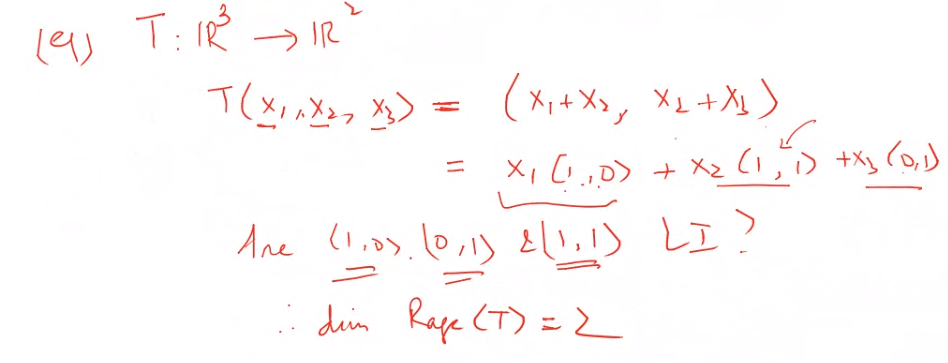 (eg) T : ℝ³ → ℝ²
T(x₁, x₂, x₃) = (x₁+x₂, x₂+x₃)
= x₁(1,0) + x₂(1,1) + x₃(0,1)
Are (1,0). (0,1) & (1,1) LI ?
∴ dim Rage (T) = 2